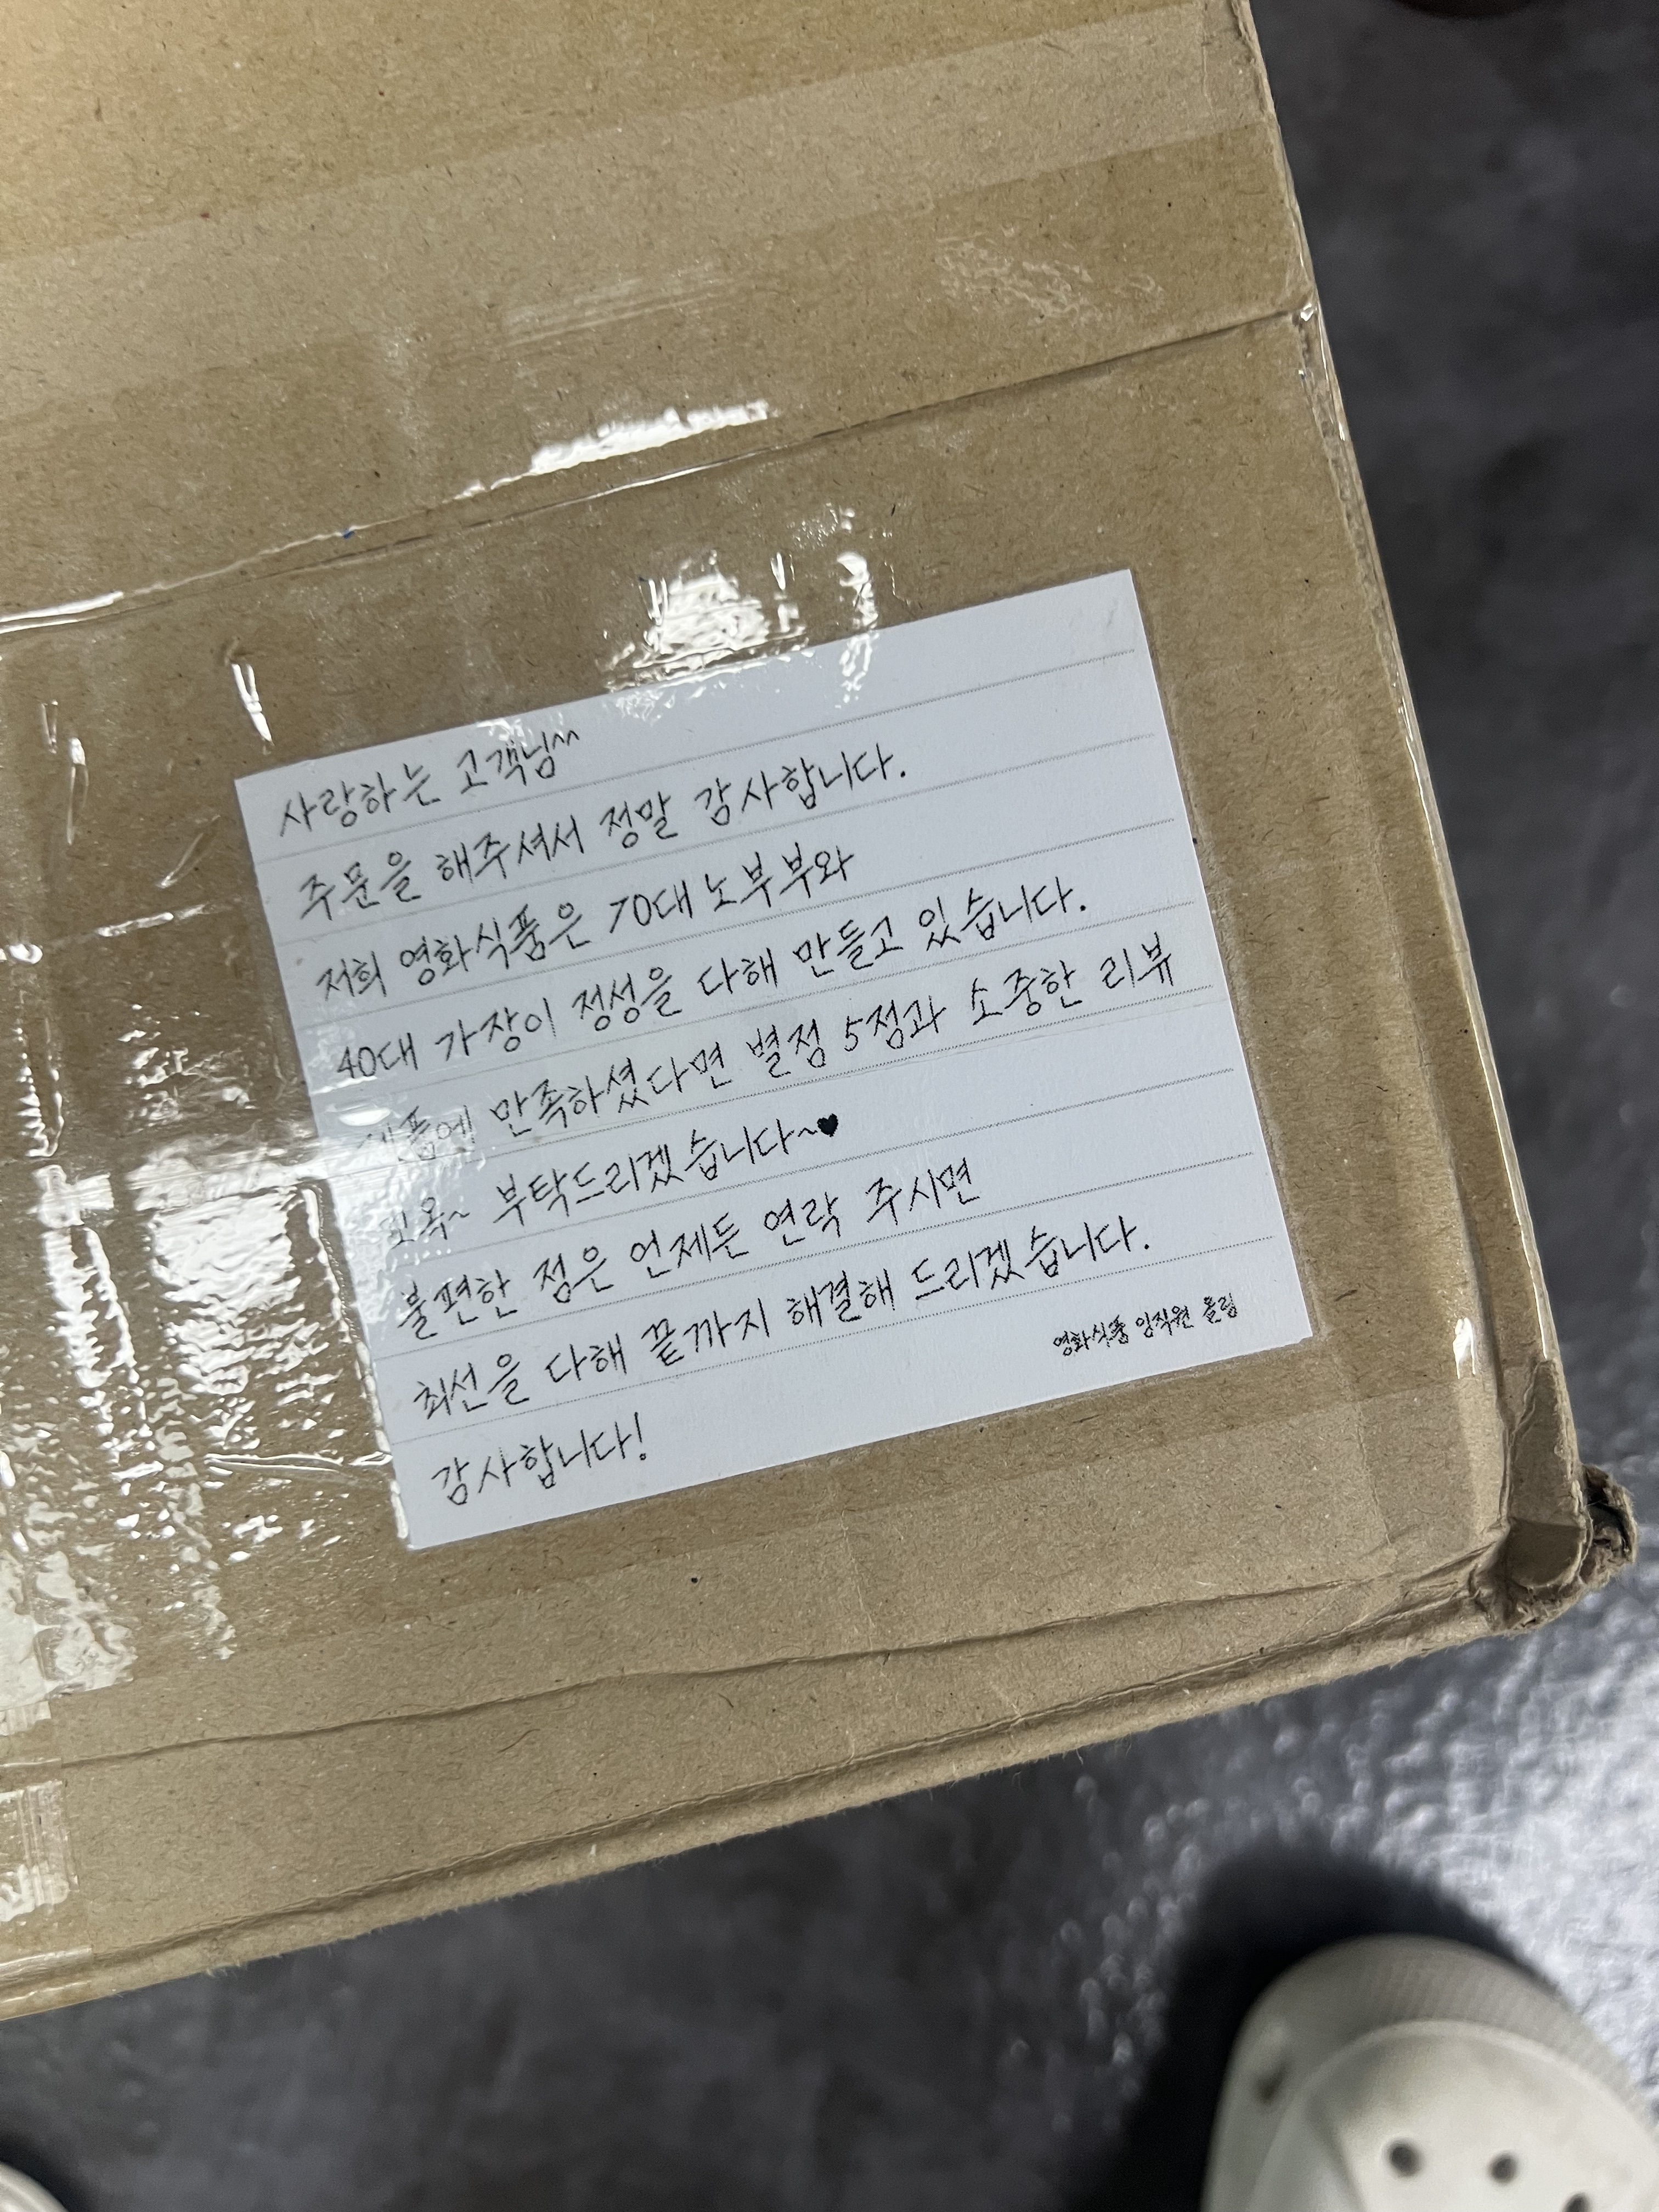 사랑하는 고객님^^
주문을 해주셔서 정말 감사합니다.
저희 영화식품은 70대 노부부와
40대 가장이 정성을 다해 만들고 있습니다.
만족하셨다면 별점 5점과 소중한 리뷰
꼬옥~ 부탁드리겠습니다~♥
불편한 점은 언제든 연락 주시면
최선을 다해 끝까지 해결해 드리겠습니다.
감사합니다!
영화식품 임직원 올림